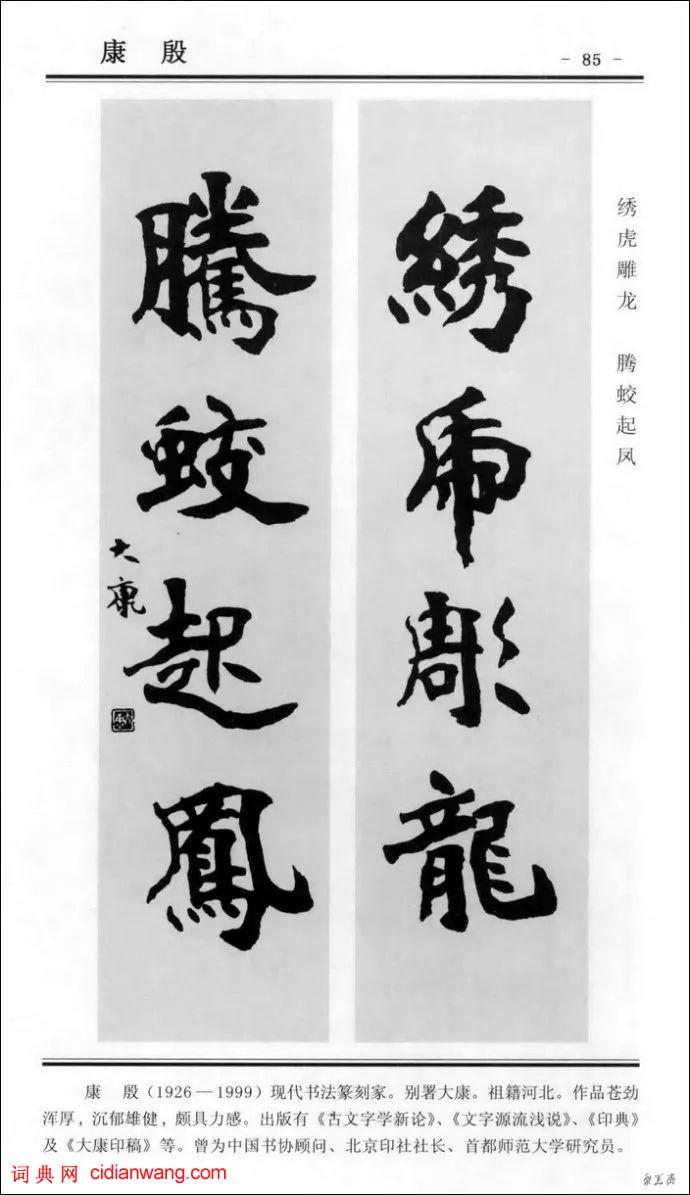 康 殷
- 85 -
绣虎雕龙 腾蛟起凤
綉虎彫龍
騰蛟起鳳
大康
康 殷（1926—1999）现代书法篆刻家。别署大康。祖籍河北。作品苍劲
浑厚，沉郁雄健，颇具力感。出版有《古文字学新论》、《文字源流浅说》、《印典》
及《大康印稿》等。曾为中国书协顾问、北京印社社长、首都师范大学研究员。
词典网 cidianwang.com